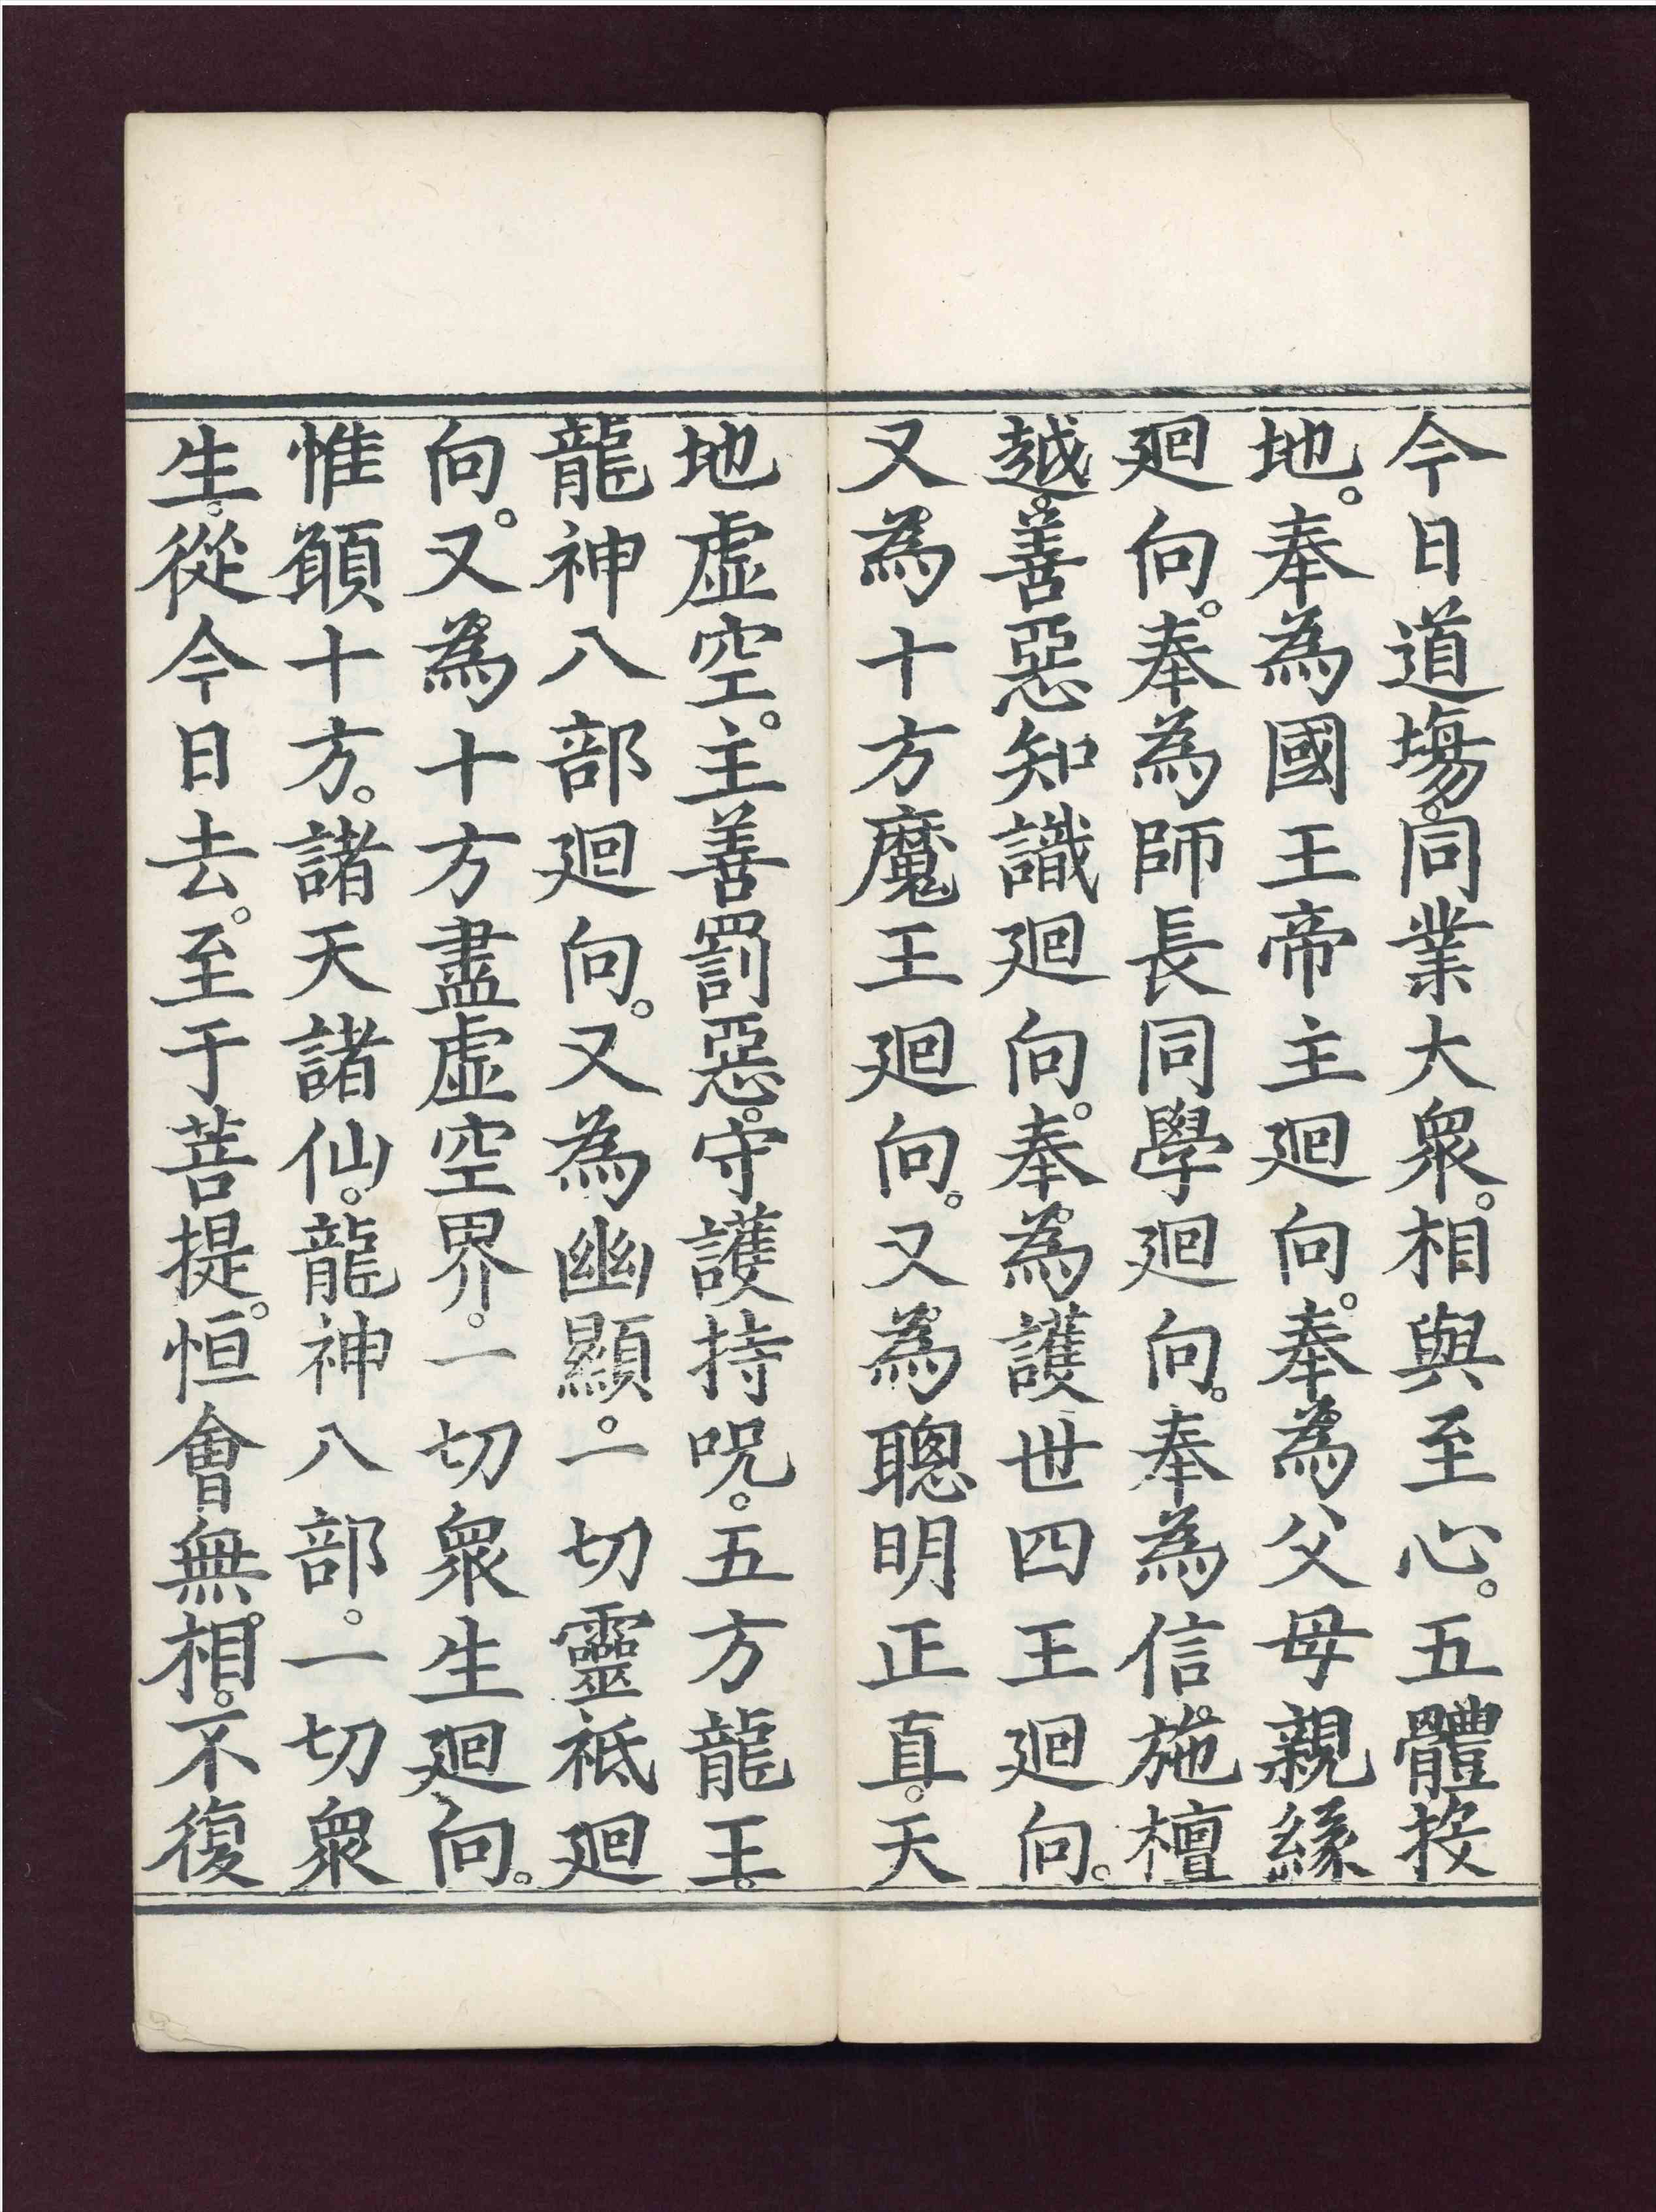 今日道塲。同業大眾。相與至心。五體投
地。奉為國王帝主廻向。奉為父母親緣
廻向。奉為師長同學廻向。奉為信施檀
越。善惡知識廻向。奉為護世四王廻向。
又為十方魔王廻向。又為聰明正直。天
地虛空。主善罰惡。守護持呪。五方龍王。
龍神八部廻向。又為幽顯。一切靈祇廻
向。又為十方盡虛空界。一切眾生廻向。
惟願十方。諸天諸仙。龍神八部。一切眾
生。從今日去。至于菩提。恒會無相。不復